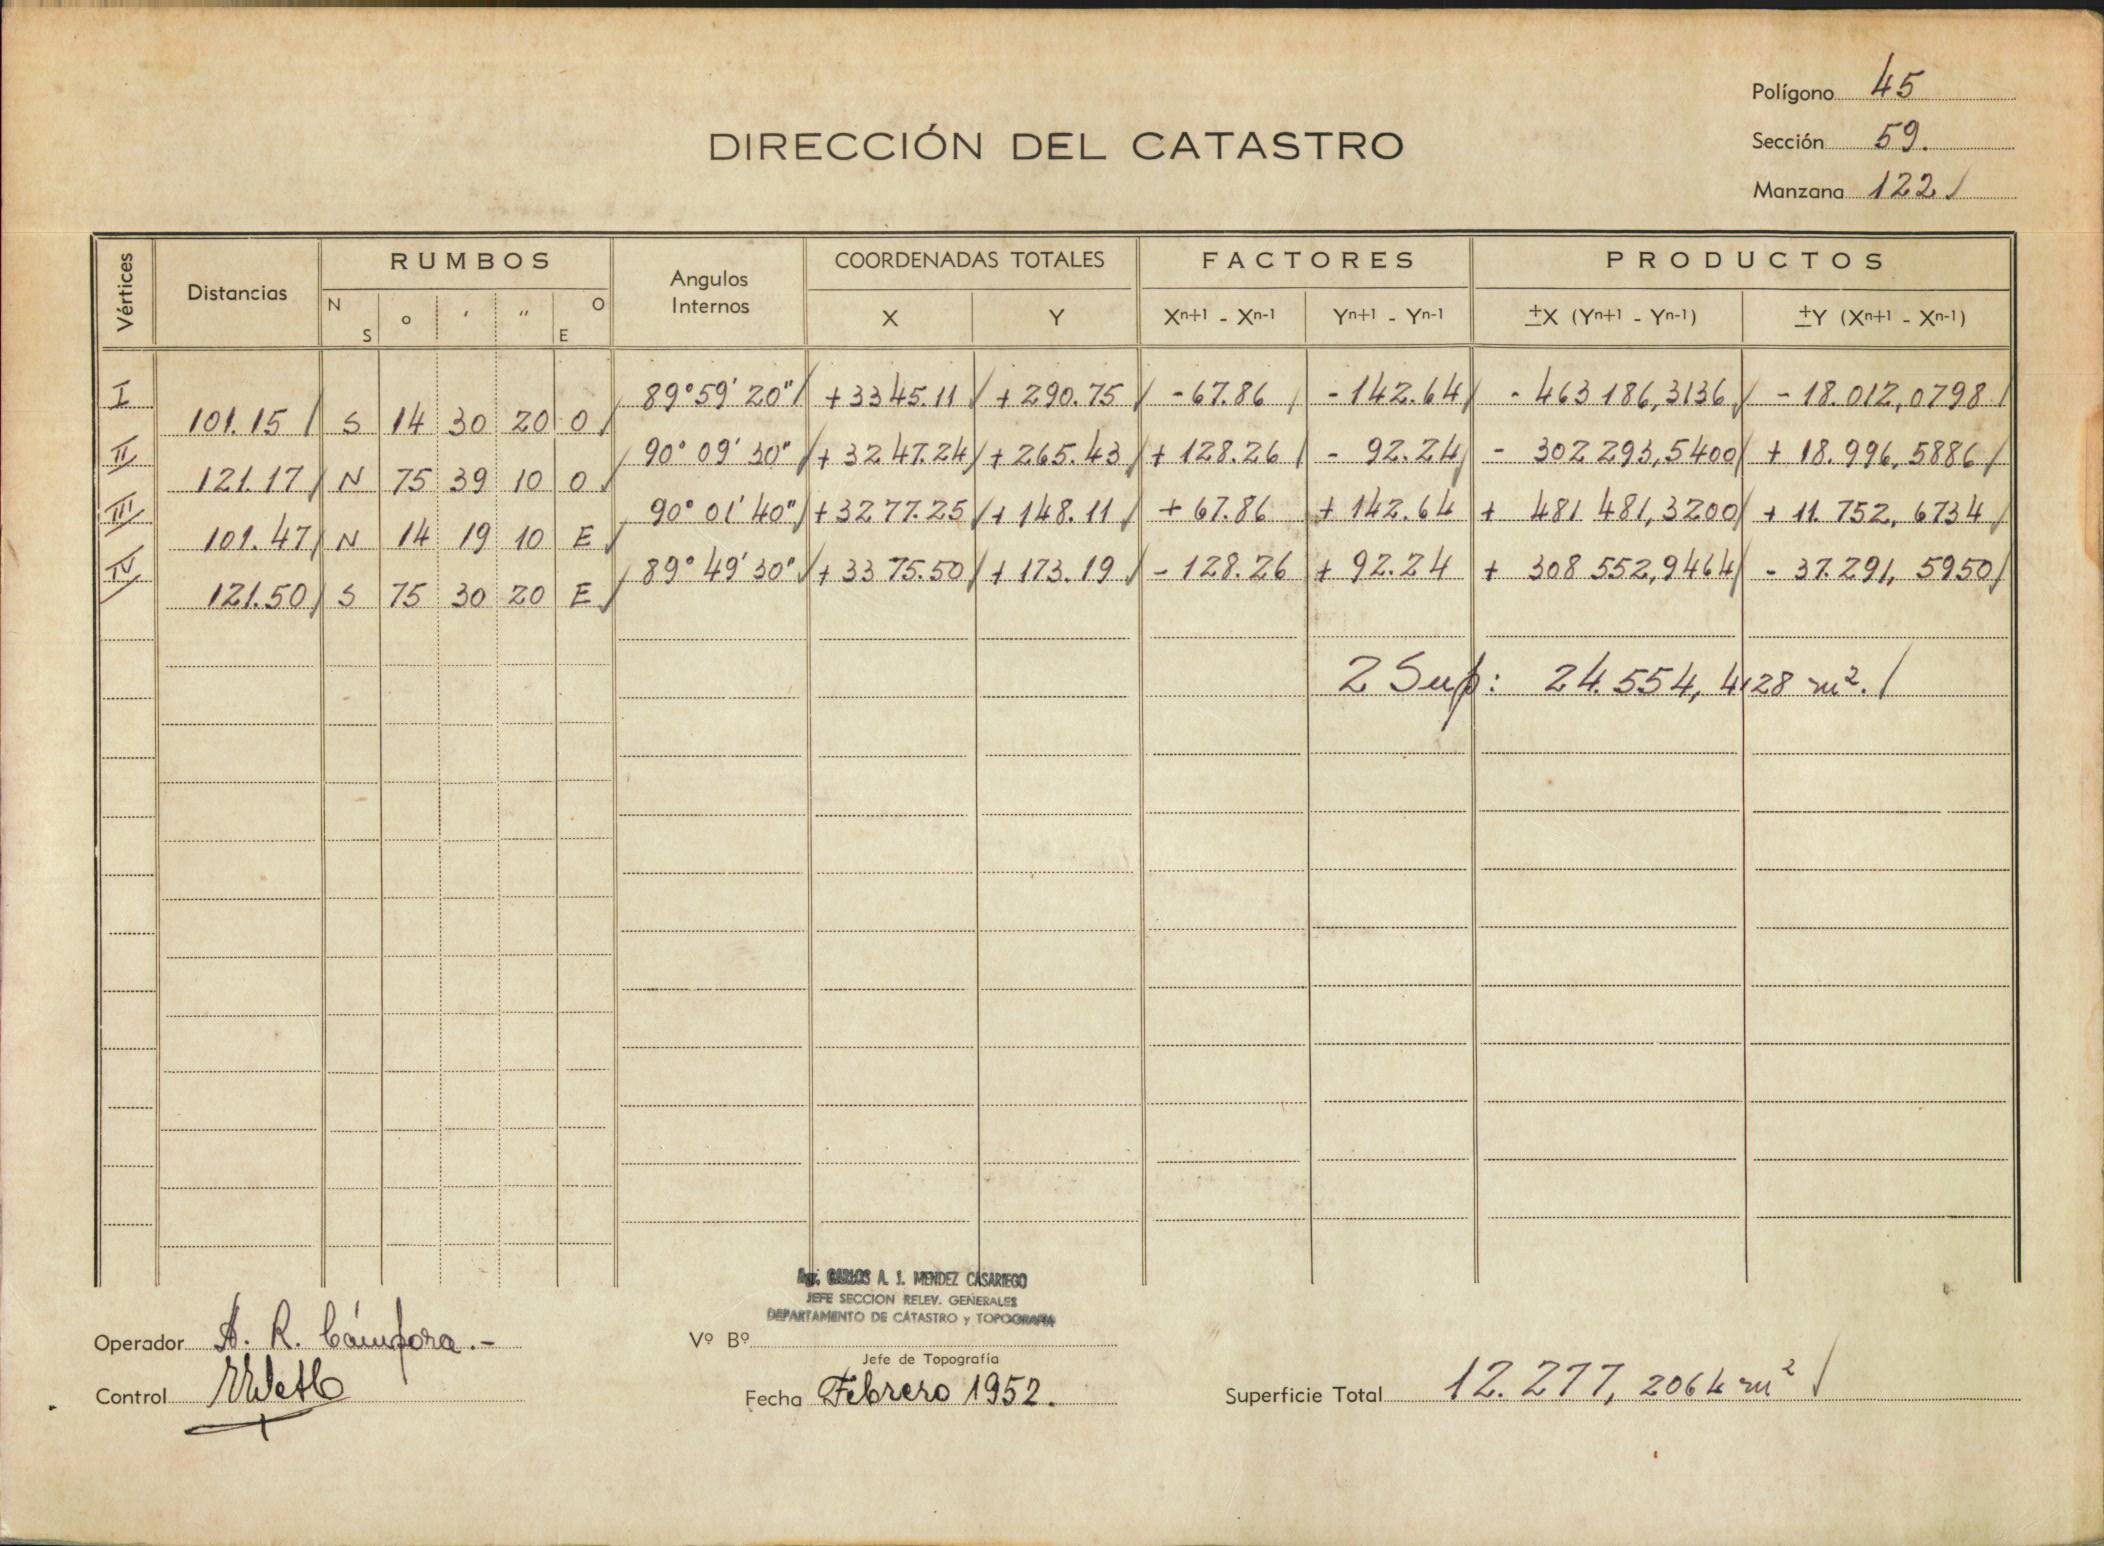 Polígono 45
DIRECCIÓN DEL CATASTRO
Sección 59.
Manzana 122
Vértices Distancias RUMBOS Angulos Internos COORDENADAS TOTALES FACTORES PRODUCTOS
N S ° ′ ″ O E X Y Xⁿ⁺¹ - Xⁿ⁻¹ Yⁿ⁺¹ - Yⁿ⁻¹ ±X (Yⁿ⁺¹ - Yⁿ⁻¹) ±Y (Xⁿ⁺¹ - Xⁿ⁻¹)
I 89°59'20" +3345.11 +290.75 -67.86 -142.64 -463186,3136 -18.012,0798
101.15 S 14 30 20 O
II 90°09'30" +3247.24 +265.43 +128.26 -92.24 -302293,5400 +18.996,5886
121.17 N 75 39 10 O
III 90°01'40" +3277.25 +148.11 +67.86 +142.64 +481481,3200 +11.752,6734
101.47 N 14 19 10 E
IV 89°49'30" +3375.50 +173.19 -128.26 +92.24 +308552,9464 -37.291,5950
121.50 S 75 30 20 E
2 Sup: 24.554,4128 m².
Agr. CARLOS A. J. MENDEZ CASARIEGO
JEFE SECCION RELEV. GENERALES
DEPARTAMENTO DE CATASTRO y TOPOGRAFIA
Operador A. R. Cámpora.-
Vº Bº
Jefe de Topografía
Control
Fecha Febrero 1952.
Superficie Total 12.277,2064 m²